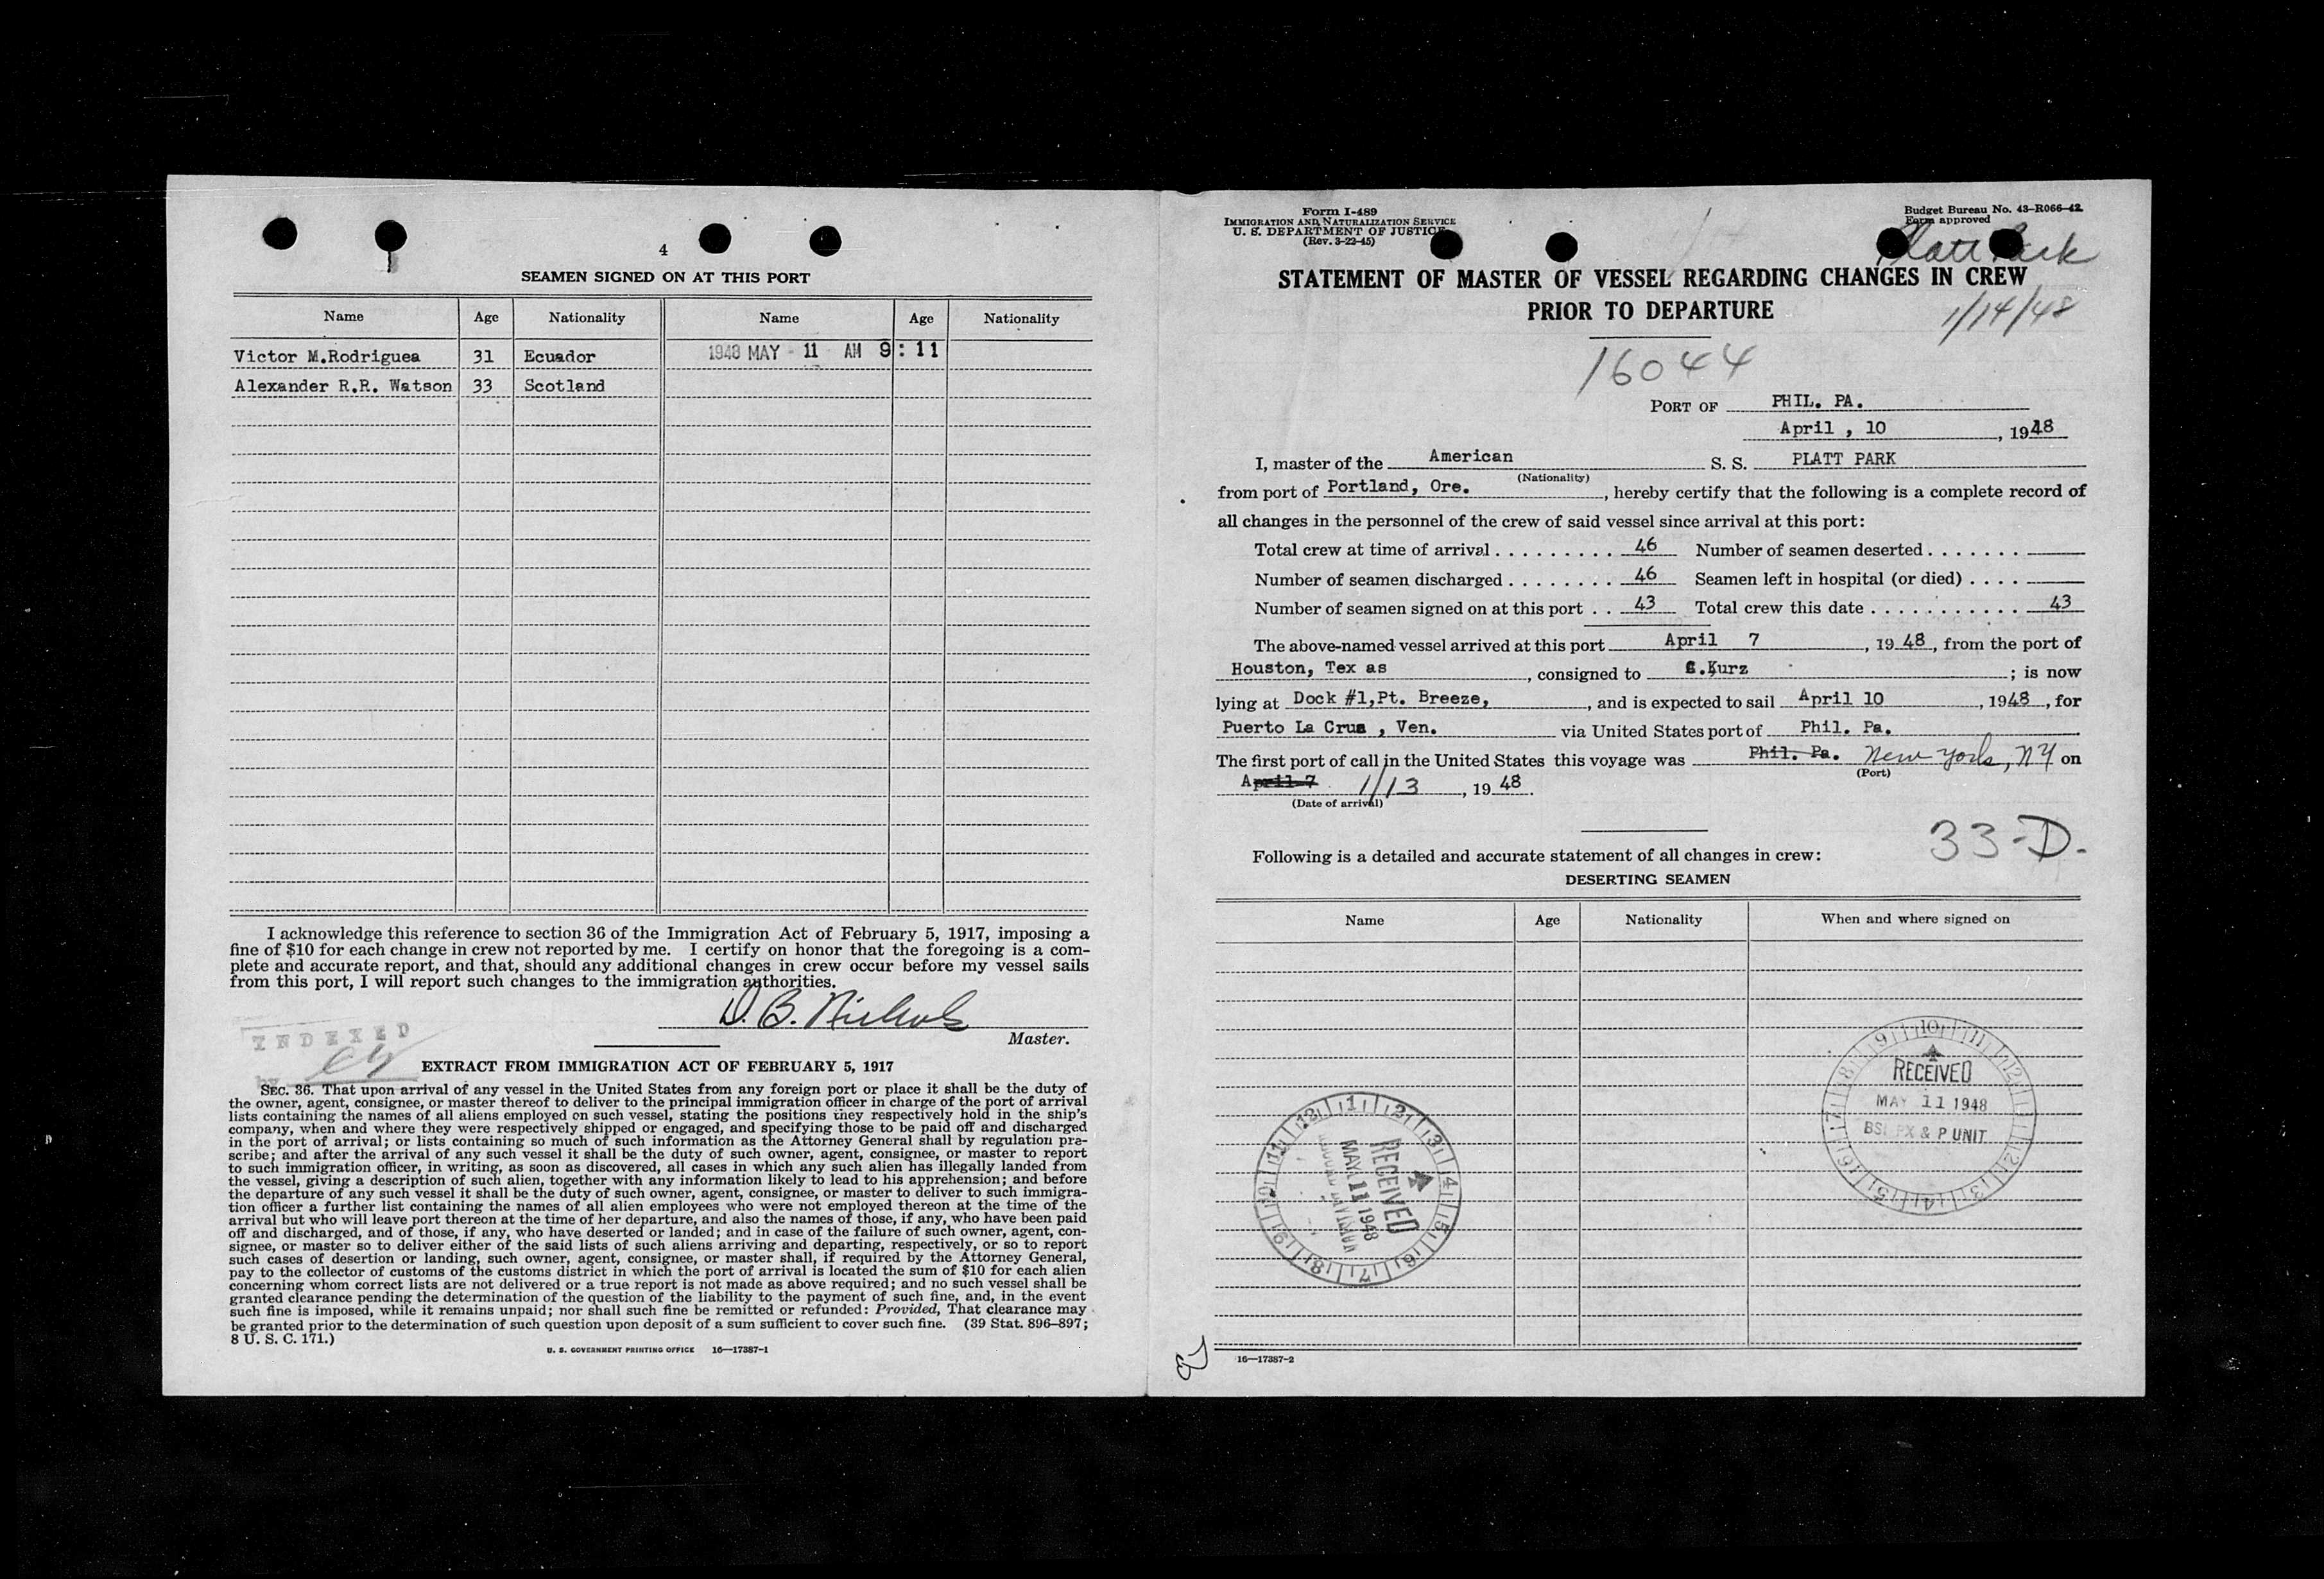 4
SEAMEN SIGNED ON AT THIS PORT
Name Age Nationality Name Age Nationality
Victor M.Rodriguea 31 Ecuador 1948 MAY 11 AM 9:11
Alexander R.R. Watson 33 Scotland
I acknowledge this reference to section 36 of the Immigration Act of February 5, 1917, imposing a
fine of $10 for each change in crew not reported by me. I certify on honor that the foregoing is a com-
plete and accurate report, and that, should any additional changes in crew occur before my vessel sails
from this port, I will report such changes to the immigration authorities.
D. B. Nichols
Master.
INDEXED
by
EXTRACT FROM IMMIGRATION ACT OF FEBRUARY 5, 1917
SEC. 36. That upon arrival of any vessel in the United States from any foreign port or place it shall be the duty of
the owner, agent, consignee, or master thereof to deliver to the principal immigration officer in charge of the port of arrival
lists containing the names of all aliens employed on such vessel, stating the positions they respectively hold in the ship's
company, when and where they were respectively shipped or engaged, and specifying those to be paid off and discharged
in the port of arrival; or lists containing so much of such information as the Attorney General shall by regulation pre-
scribe; and after the arrival of any such vessel it shall be the duty of such owner, agent, consignee, or master to report
to such immigration officer, in writing, as soon as discovered, all cases in which any such alien has illegally landed from
the vessel, giving a description of such alien, together with any information likely to lead to his apprehension; and before
the departure of any such vessel it shall be the duty of such owner, agent, consignee, or master to deliver to such immigra-
tion officer a further list containing the names of all alien employees who were not employed thereon at the time of the
arrival but who will leave port thereon at the time of her departure, and also the names of those, if any, who have been paid
off and discharged, and of those, if any, who have deserted or landed; and in case of the failure of such owner, agent, con-
signee, or master so to deliver either of the said lists of such aliens arriving and departing, respectively, or so to report
such cases of desertion or landing, such owner, agent, consignee, or master shall, if required by the Attorney General,
pay to the collector of customs of the customs district in which the port of arrival is located the sum of $10 for each alien
concerning whom correct lists are not delivered or a true report is not made as above required; and no such vessel shall be
granted clearance pending the determination of the question of the liability to the payment of such fine, and, in the event
such fine is imposed, while it remains unpaid; nor shall such fine be remitted or refunded: Provided, That clearance may
be granted prior to the determination of such question upon deposit of a sum sufficient to cover such fine. (39 Stat. 896–897;
8 U. S. C. 171.)
U. S. GOVERNMENT PRINTING OFFICE 16—17387-1
Form I-489
IMMIGRATION AND NATURALIZATION SERVICE
U. S. DEPARTMENT OF JUSTICE
(Rev. 3-22-45)
Budget Bureau No. 43-R066-42
Form approved
Platt Park
STATEMENT OF MASTER OF VESSEL REGARDING CHANGES IN CREW
PRIOR TO DEPARTURE
1/14/48
16044
PORT OF PHIL. PA.
April , 10, 1948
I, master of the American S. S. PLATT PARK
(Nationality)
from port of Portland, Ore., hereby certify that the following is a complete record of
all changes in the personnel of the crew of said vessel since arrival at this port:
Total crew at time of arrival 46 Number of seamen deserted
Number of seamen discharged 46 Seamen left in hospital (or died)
Number of seamen signed on at this port 43 Total crew this date 43
The above-named vessel arrived at this port April 7, 1948, from the port of
Houston, Tex as, consigned to C.Kurz; is now
lying at Dock #1,Pt. Breeze, , and is expected to sail April 10, 1948, for
Puerto La Crus , Ven. via United States port of Phil. Pa.
The first port of call in the United States this voyage was Phil. Pa. New York, NY on
(Port)
April 7 1/13, 1948.
(Date of arrival)
33-D.
Following is a detailed and accurate statement of all changes in crew:
DESERTING SEAMEN
Name Age Nationality When and where signed on
RECEIVED
MAY 11 1948
BSI PX & P UNIT
RECEIVED
MAY 11 1948
16—17387-2